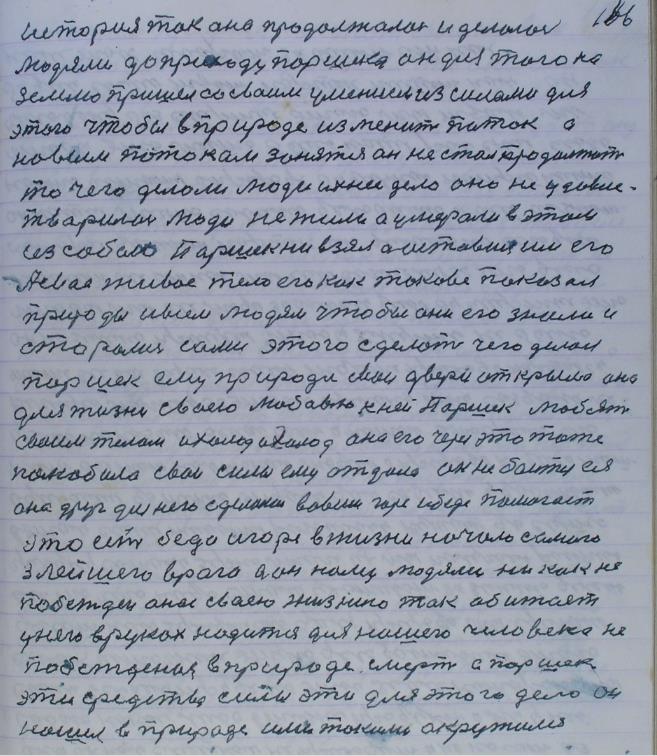 186
история так она продолжалас и делолас
людями до приходу паршека он для этого на
землю пришел со своим умением из силами для
этого чтобы в природе изменит паток а
новым потокам занятся он не стал продолжит
то чего делали люди ихнее дело оно не удовле-
тварилос люди не жили а умерали в этом
из собою Паршек ни взял а оставил им его
живое тело его как токове показал
природы и всем людям чтобы они его знали и
старалис сами этого сделат чего делал
паршек ему природа свои двери открыла она
для жизни своею любавю к ней Паршек любят
своим телом и холод а холод она его через это тоже
полюбила свои силы ему отдала он не боится ея
она друг для него сделалас во всем горе и беде помогает
это ест беда и горе в жизни начало самого
злейшего врага а он нами людями ни как не
побежден она своею жизнию так обитает
у него в руках надится для нашего человека не
побеждения в природе смерт а паршек
эти средства силы эти для этого дело он
нашел в природе ими такими окружился